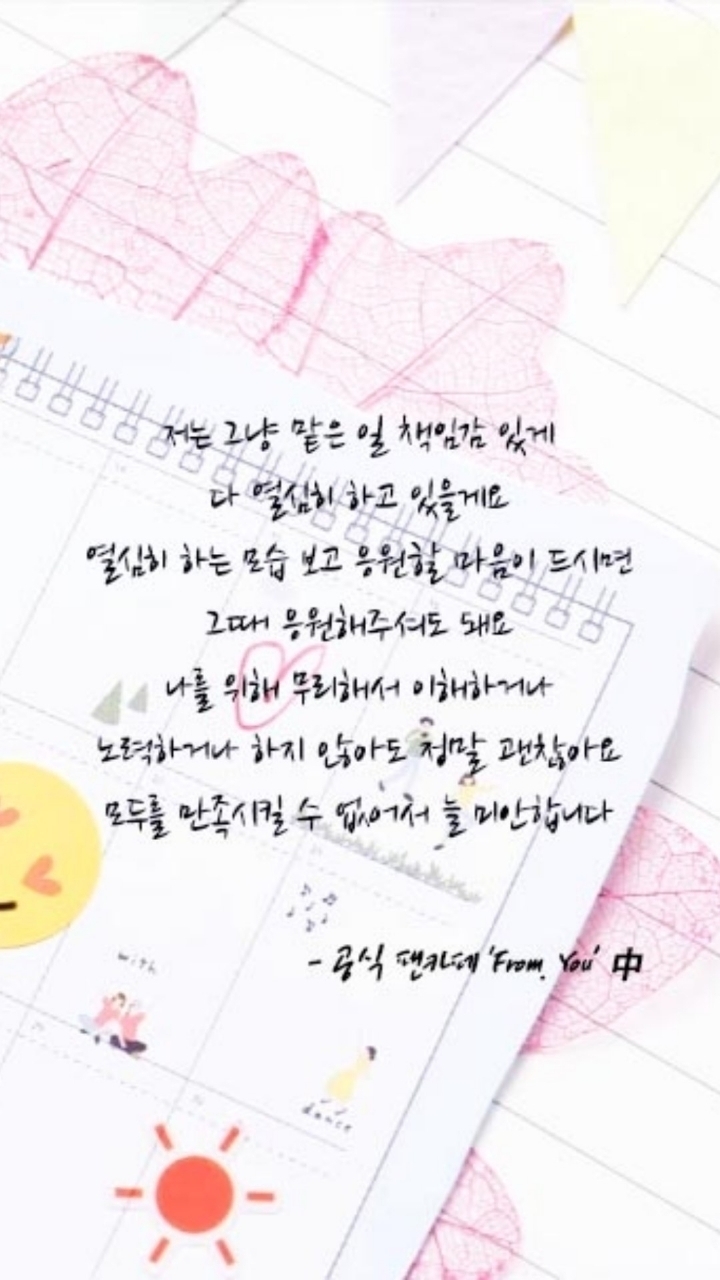 저는 그냥 맡은 일 책임감 있게
다 열심히 하고 있을게요
열심히 하는 모습 보고 응원할 마음이 드시면
그때 응원해주셔도 돼요
나를 위해 무리해서 이해하거나
노력하거나 하지 않아도 정말 괜찮아요
모두를 만족시킬 수 없어서 늘 미안합니다
- 공식 팬카페 'From. You' 中
with
dance